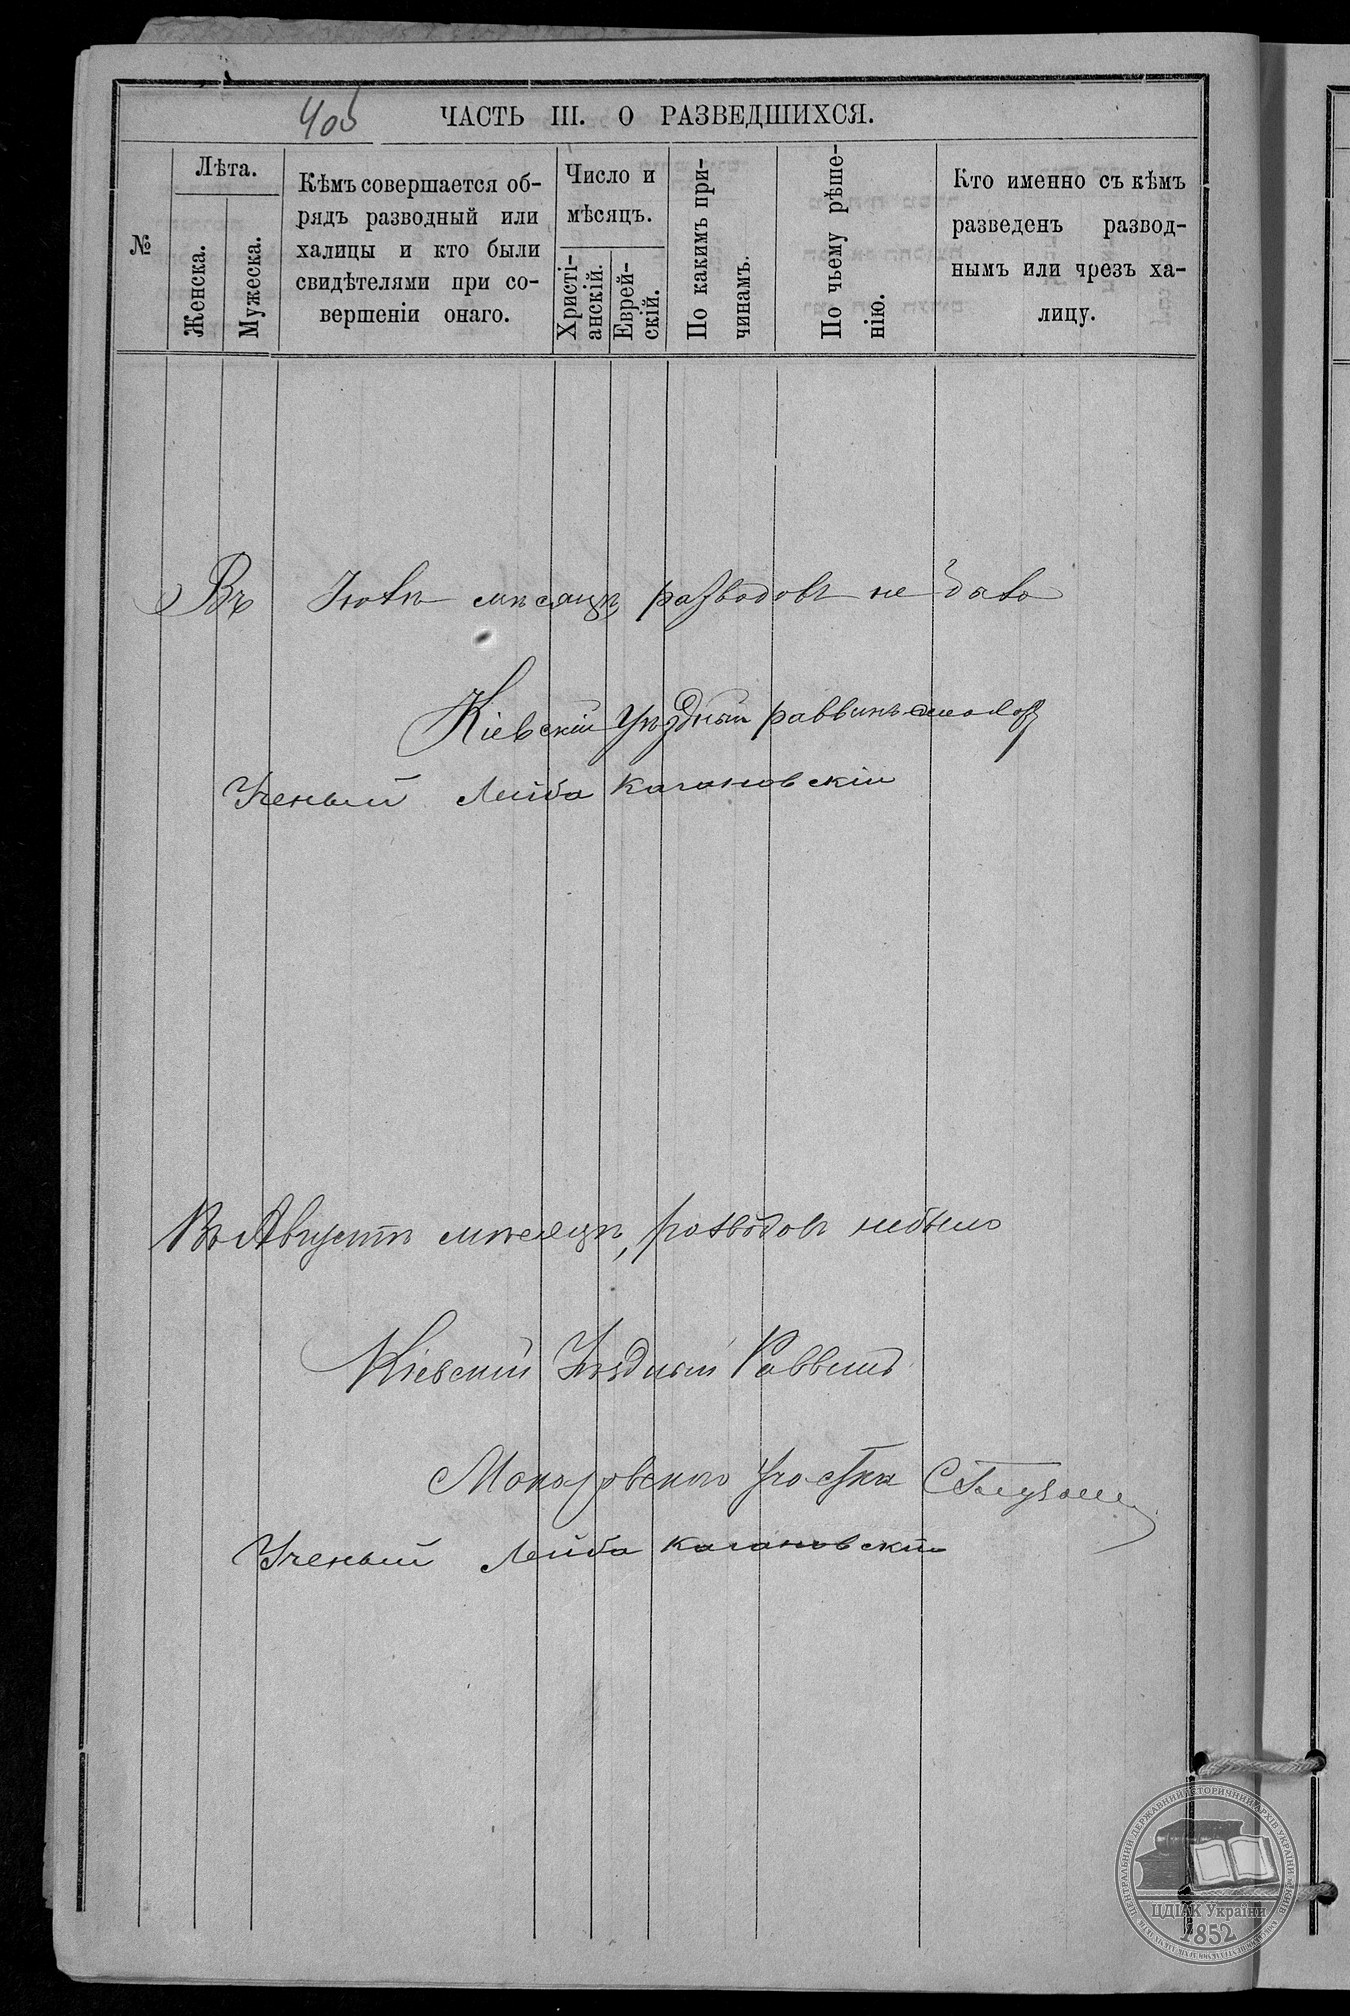 ЧАСТЬ III. О РАЗВЕДШИХСЯ.
№
Лѣта.
Женска.
Мужеска.
Кѣмъ совершается об-
рядъ разводный или
халицы и кто были
свидѣтелями при со-
вершеніи онаго.
Число и
мѣсяцъ.
Христі-
анскій.
Еврей-
скій.
По какимъ при-
чинамъ.
По чьему рѣше-
нію.
Кто именно съ кѣмъ
разведенъ развод-
нымъ или чрезъ ха-
лицу.
Въ мѣсяцѣ разводовъ не было
Кіевскій Уѣздный раввинъ
Ученый Лейба Кагановскій
Въ Августѣ мѣсяцѣ, разводовъ небыло
Кіевскій Уѣздный Раввинъ
Макаровскаго участка
Ученый Лейба Кагановскій
ЦЕНТРАЛЬНИЙ ДЕРЖАВНИЙ ІСТОРИЧНИЙ АРХІВ УКРАЇНИ
ЦДІАК України
1852